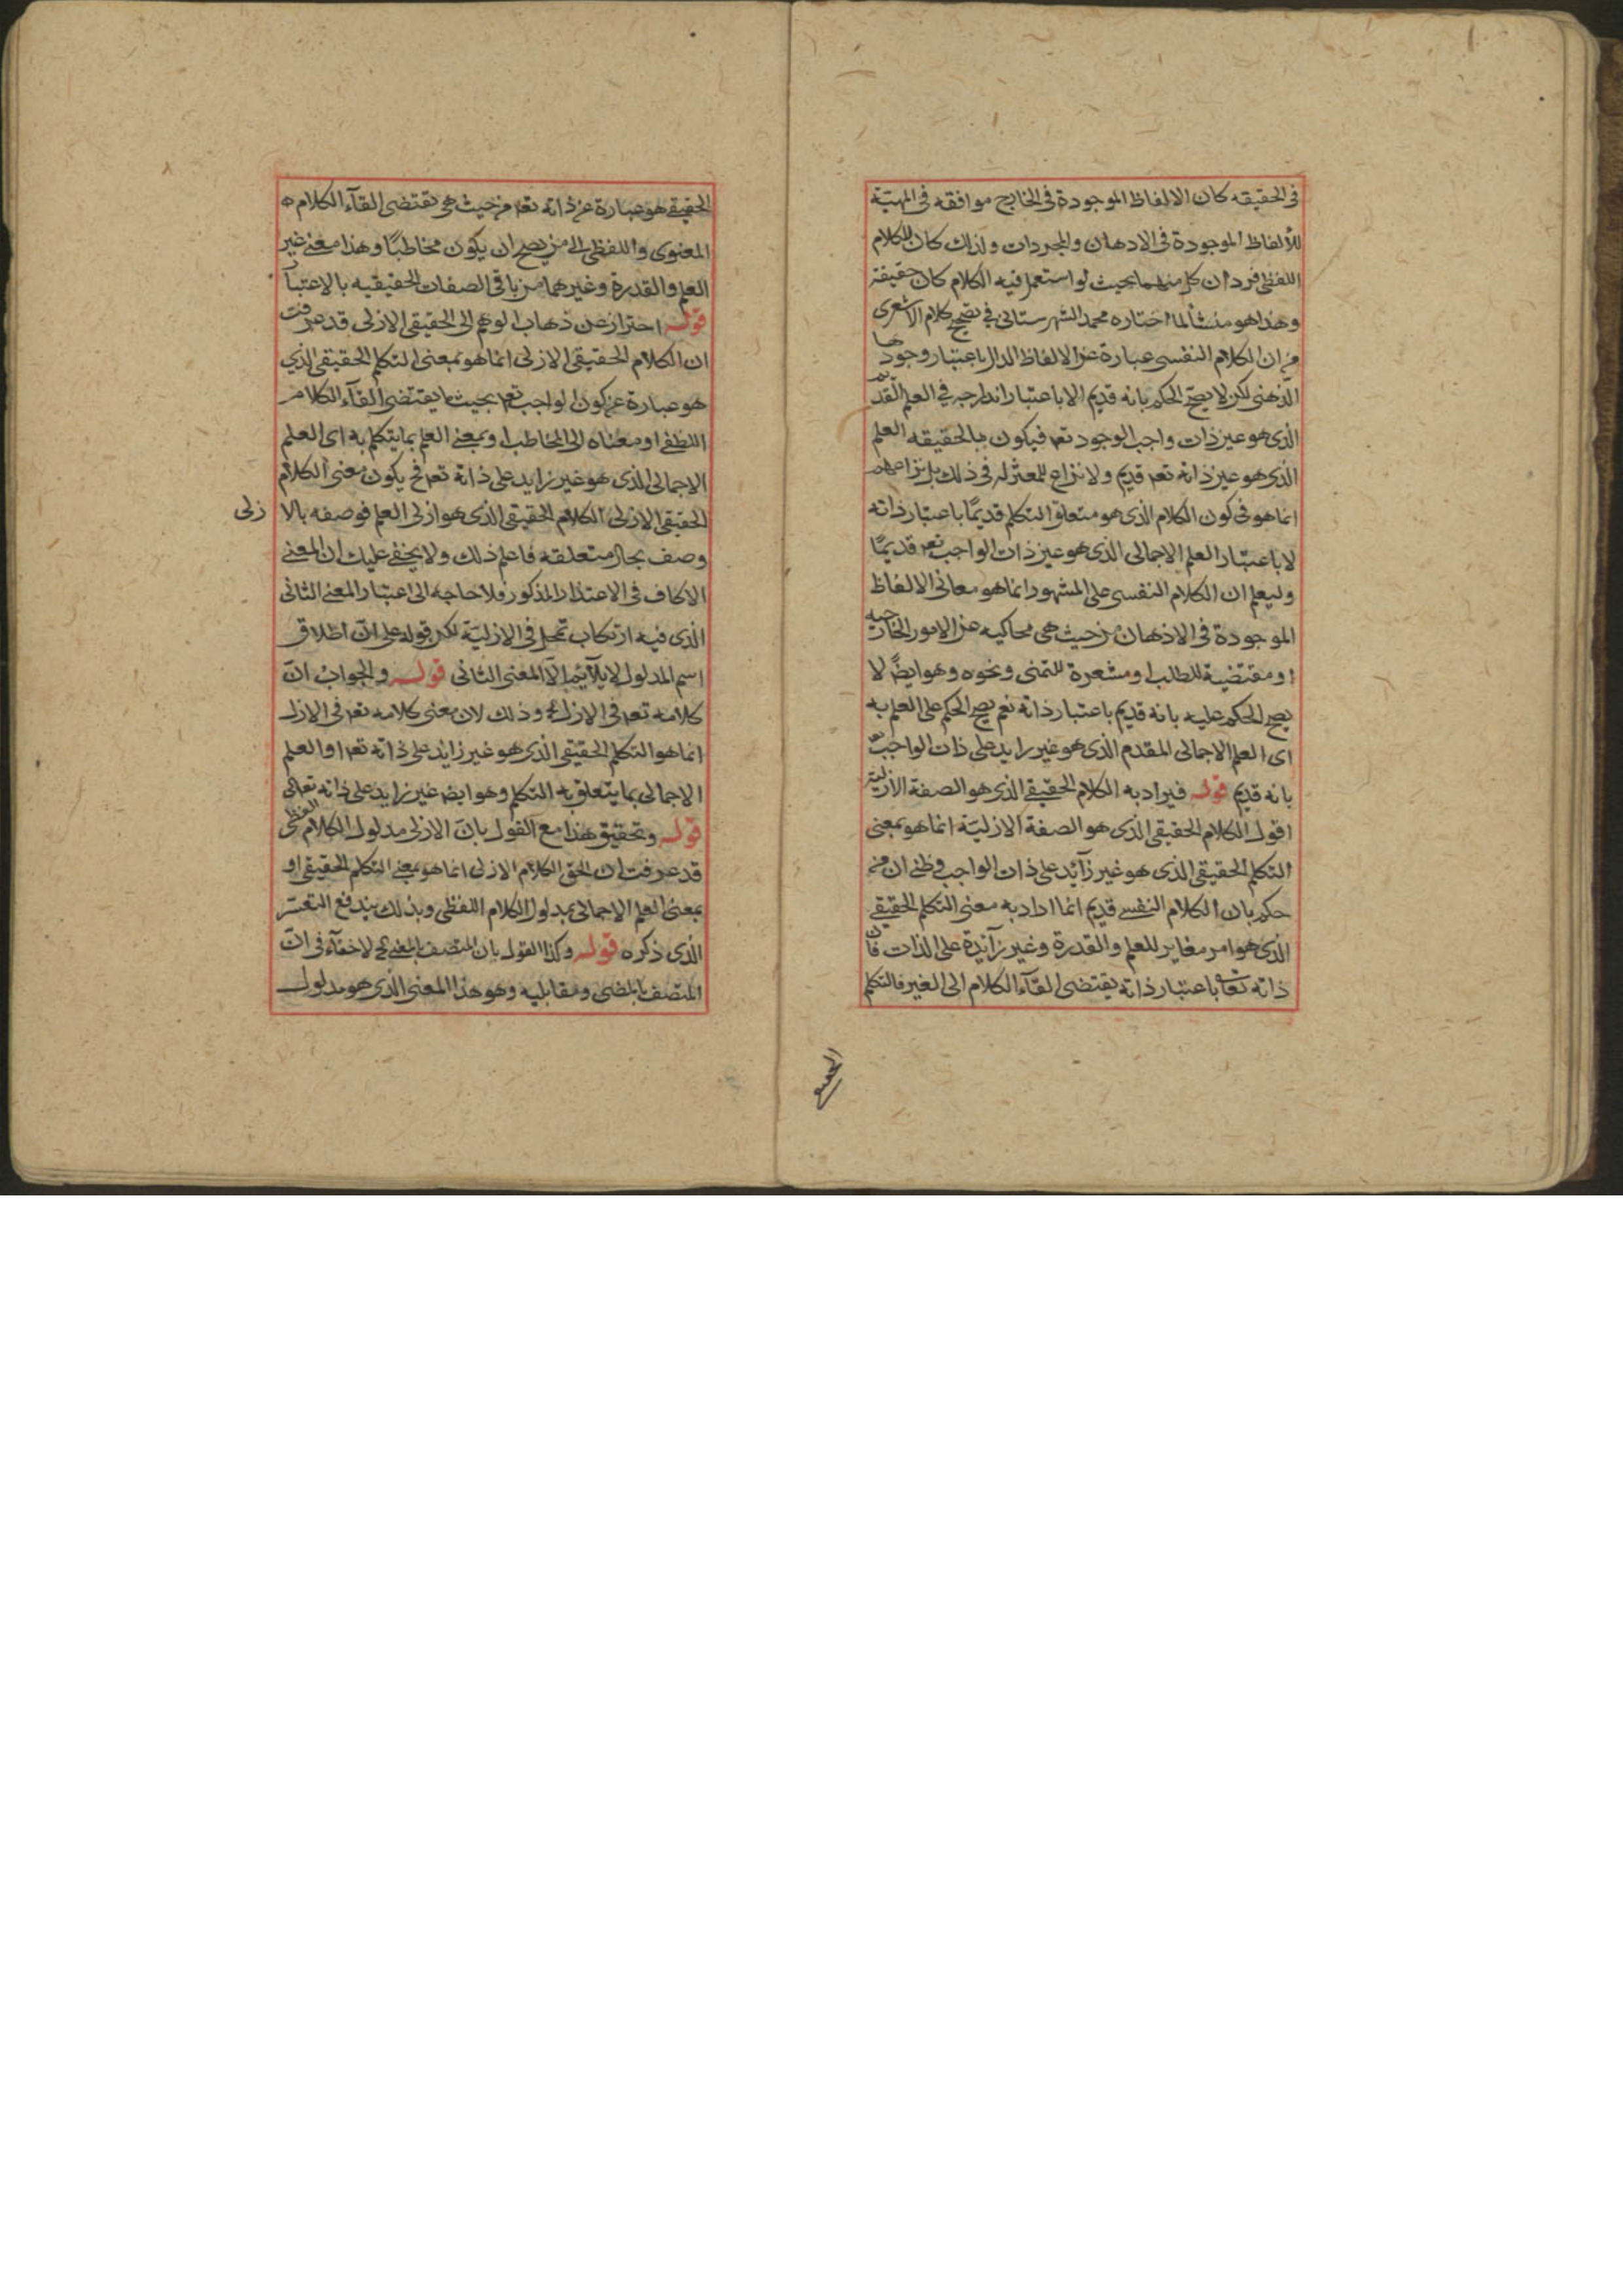 فى الحقيقه كان الالفاظ الموجودة فى الخارج موافقه فى المهيّة
للألفاظ الموجودة فى الاذهان والمجردات ولذلك كان للكلام
اللفظى فردان كل منهما بحيث لو استعمل فيه الكلام كان حقيقة
وهذا هو منشأ لما اختاره محمد الشهرستانى فى تصحيح كلام الاشعرى
من ان الكلام النفسى عبارة عن الالفاظ الدال باعتبار وجودها
الذهنى لكن لا يصح الحكم بانه قديم الا باعتبار اندراجه فى العلم القديم
الذى هو عين ذات واجب الوجود تعم فيكون بالحقيقه العلم
الذى هو عين ذاته تعم قديم ولا نزاع للمعتزله فى ذلك بل نزاعهم
انما هو فى كون الكلام الذى هو متعلق التكلم قديمًا باعتبار ذاته
لا باعتبار العلم الاجمالى الذى هو عين ذات الواجب تعم قديمًا
وليعلم ان الكلام النفسى على المشهور انما هو معانى الالفاظ
الموجودة فى الاذهان من حيث هى محاكيه عن الامور الخارجيه
او مقتضية للطلب او مشعرة للتمنى ونحوه وهو ايضًا لا
يصح الحكم عليه بانه قديم باعتبار ذاته نعم يصح الحكم على العلم به
اى العلم الاجمالى المقدم الذى هو غير زايد على ذات الواجب
بانه قديم قوله فيراد به الكلام الحقيقى الذى هو الصفة الازلية
اقول الكلام الحقيقى الذى هو الصفة الازليّة انما هو بمعنى
التكلم الحقيقى الذى هو غير زآئد على ذات الواجب وظنى ان من
حكم بان الكلام النفسى قديم انما اراد به معنى التكلم الحقيقى
الذى هو امر مغاير للعلم والقدرة وغير زآئدة على الذات فان
ذاته تعا باعتبار ذاته يقتضى القآء الكلام الى الغير فالتكلم
الحقيقى
الحقيقى هو عبارة عن ذاته تعم من حيث هى تقتضى القآء الكلام
المعنوى واللفظى الى من يصح ان يكون مخاطبًا وهذا معنى غير
العلم والقدرة وغيرهما من باقى الصفات الحقيقيه بالاعتبار
قوله احتراز عن ذهاب الوهم الى الحقيقى الازلى قد عرفت
ان الكلام الحقيقى الازلى انما هو بمعنى التكلم الحقيقى الذي
هو عبارة عن كون الواجب تعم بحيث يقتضى القآء الكلام
اللفظى او معناه الى المخاطب او بمعنى العلم بما يتكلم به اى العلم
الاجمالى الذى هو غير زايد على ذاته تعم فح يكون معنى الكلام
الحقيقى الازلى الكلام الحقيقى الذى هو ازلى العلم فوصفه بالا زلى
وصف بحال متعلقه فاعلم ذلك ولا يخفى عليك ان المعنى
الا كاف فى الاعتذار المذكور فلا حاجه الى اعتبار المعنى الثانى
الذى فيه ارتكاب تمحل فى الازليّة لكن قوله على انّ اطلاق
اسم المدلول لا يلآئمه الّا المعنى الثانى قوله والجواب انّ
كلامه تعم فى الازل وذلك لان معنى كلامه تعم فى الازل
انما هو التكلم الحقيقى الذى هو غير زائد على ذاته تعم او العلم
الاجمالى بما يتعلق به التكلم وهو ايض غير زايد على ذاته تعالى
قوله وتحقيق هذا مع القول بانّ الازلى مدلول الكلام اللفظى
قد عرفت ان الحق الكلام الازلى انما هو بمعنى التكلم الحقيقى او
بمعنى العلم الاجمالى بمدلول الكلام اللفظى وبذلك يندفع التعسّر
الذى ذكره قوله وكذا القول بان المتصف بالمضى لا خفآء فى انّ
المتصف بالمضى ومقابليه وهو هذا المعنى الذى هو مدلول